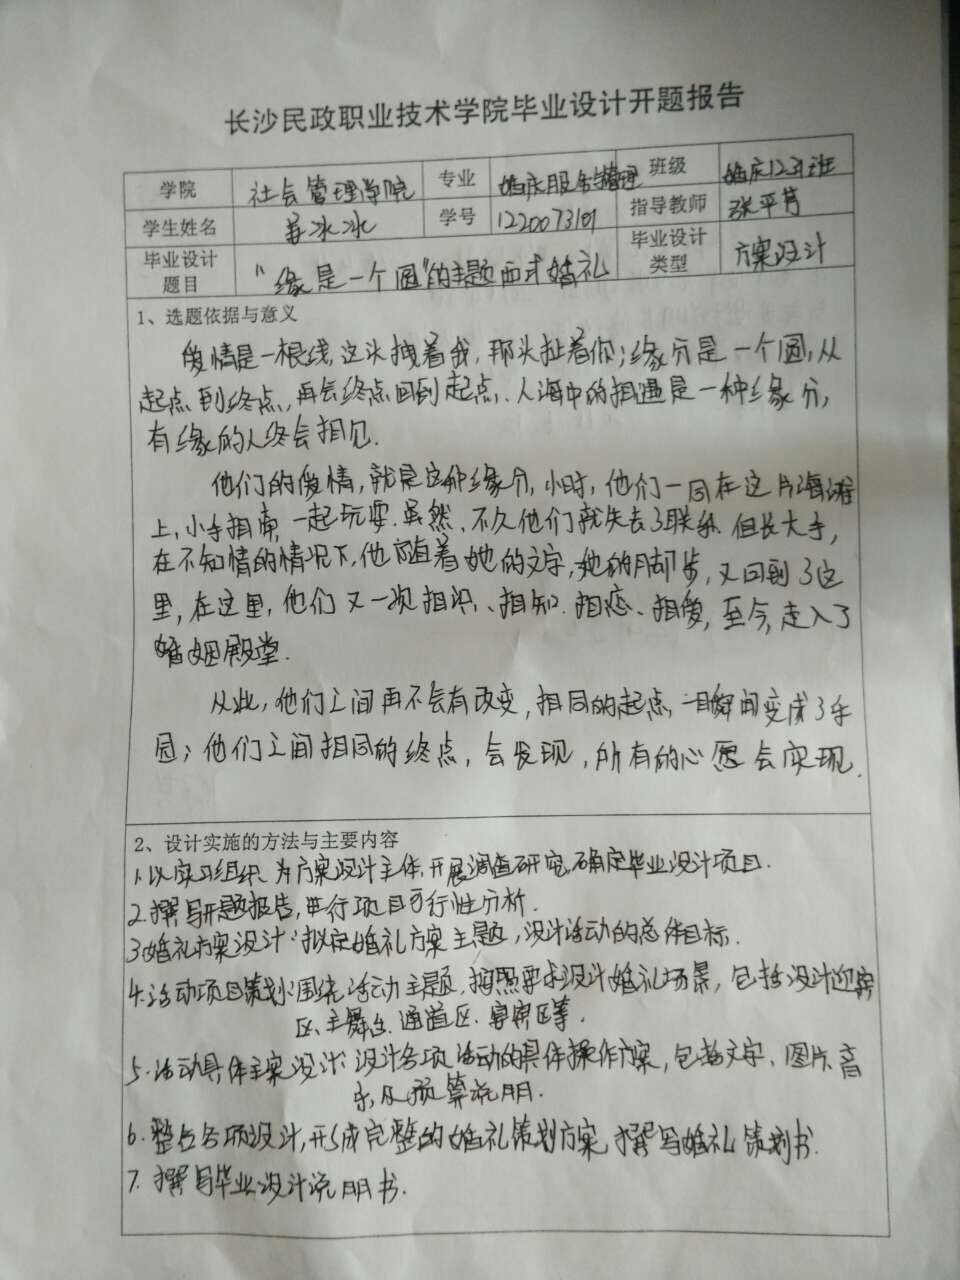 长沙民政职业技术学院毕业设计开题报告
学院 社会管理学院 专业 婚庆服务与管理 班级 婚庆1231班
学生姓名 姜冰冰 学号 1220073101 指导教师 张平芳
毕业设计题目 “缘是一个圆”的主题西式婚礼 毕业设计类型 方案设计
1、选题依据与意义
爱情是一根线,这头拽着我,那头扯着你;缘分是一个圆,从
起点到终点,再会终点回到起点、人海中的相遇是一种缘分,
有缘的人终会相见.
他们的爱情,就是这种缘分,小时,他们一同在这片海滩
上,小手相牵,一起玩耍.虽然、不久他们就失去了联系.但长大手,
在不知情的情况下,他随着她的文字,她的脚步,又回到了这
里,在这里,他们又一次相识、相知.相恋、相爱,至今,走入了
婚姻殿堂.
从此,他们之间再不会有改变,相同的起点,一瞬间变成了乐
园;他们之间相同的终点,会发现,所有的心愿会实现.
2、设计实施的方法与主要内容
1.以实习组织为方案设计主体,开展调查研究,确定毕业设计项目.
2.撰写开题报告,进行项目可行性分析.
3.婚礼方案设计:拟定婚礼方案主题,设计活动的总体目标.
4.活动项目策划:围绕活动主题,按照要求设计婚礼场景,包括设计迎宾
区、主舞台、通道区、宴宾区等.
5.活动具体方案设计:设计各项活动的具体操作方案,包括文字、图片、音
乐,及预算说明.
6.整合各项设计,形成完整的婚礼策划方案,撰写婚礼策划书.
7.撰写毕业设计说明书.